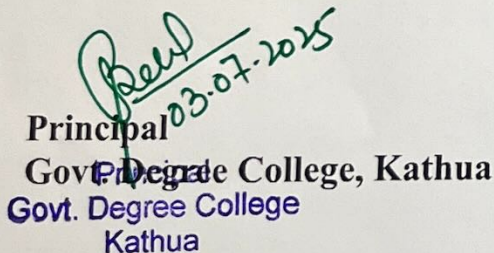 03.07.2025
Principal
Govt. Degree College, Kathua
Principal
Govt. Degree College
Kathua